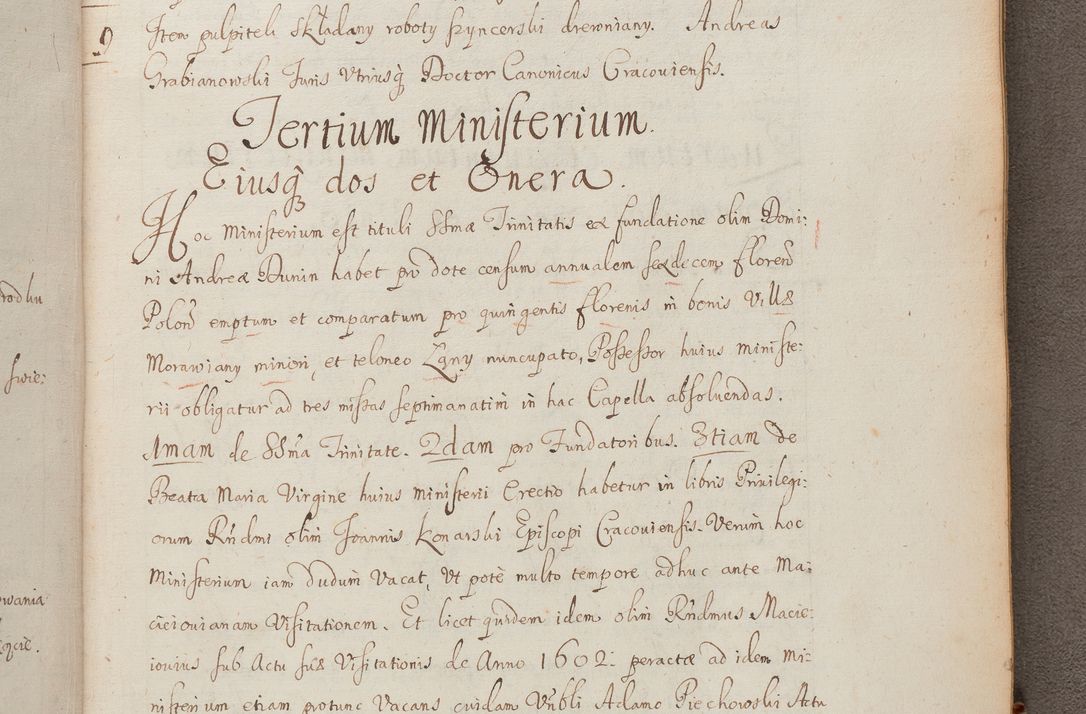 9 Item pulpitek składany roboty sznycerski drewniany. Andreas
Grabianowski Juris Vtriusq Doctor Canonicus Cracouiensis.
Tertium Ministerium.
Eiusq dos et Onera.
Hoc Ministerium est tituli SSmæ Trinitatis ex fundatione olim Domi:
ni Andreæ Dunin habet pro dote censum annualem sexdecem floren
Polon emptum et comparatum pro quingentis florenis in bonis Villæ
Morawiany minori, et teloneo Zgny nuncupato, Possessor huius ministe:
rii obligatur ad tres missas septimanatim in hac Capella absoluendas.
1mam de SSma Trinitate. 2dam pro Fundatoribus. 3tiam de
Beata Maria Virgine huius ministerii Erectio habetur in libris Priuilegi:
orum Rndmi olim Joannis Konarski Episcopi Cracouiensis. Verum hoc
Ministerium iam dudum Vacat, Vt potè multo tempore adhuc ante Ma:
cieiouianam Visitationem. Et licet quidem idem olim Rndmus Macie:
iouius sub Actu suæ Visitationis de Anno 1602: peractæ ad idem Mi:
nisterium etiam protunc Vacans cuidam Vnbli Adamo Piechowski Actu
rodku
swie:
owania